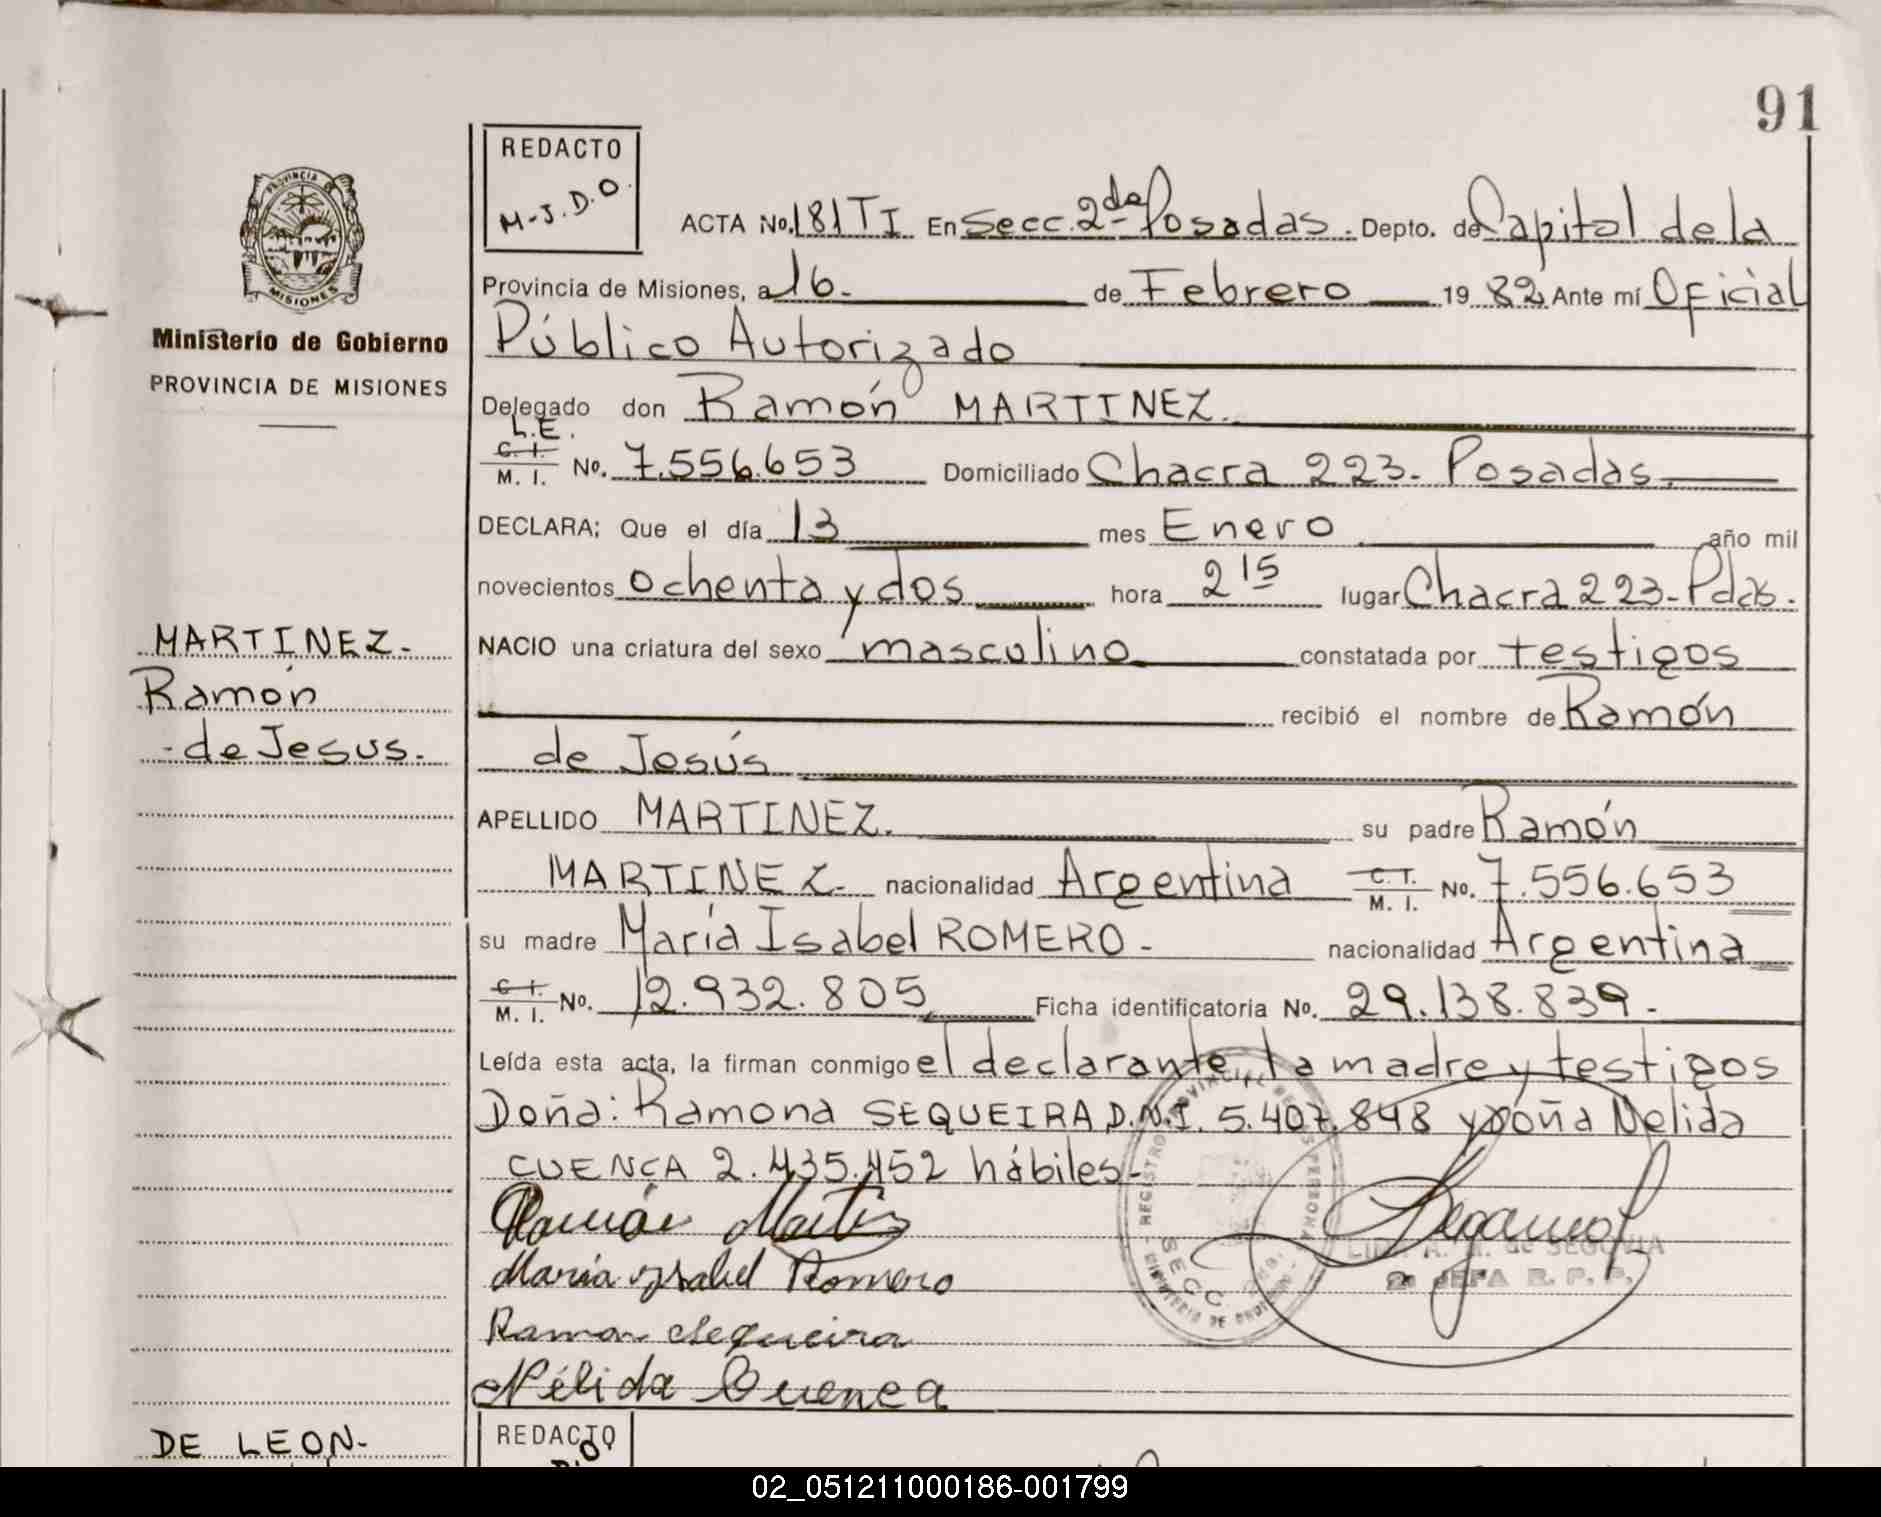 91
REDACTO
M-J.D.O.
PROVINCIA DE
MISIONES
Ministerio de Gobierno
PROVINCIA DE MISIONES
ACTA No. 181 TI En Secc. 2da Posadas. Depto. de Capital de la
Provincia de Misiones, a 16. de Febrero 1982 Ante mí Oficial
Público Autorizado
Delegado don Ramón MARTINEZ.
L.E.
C. I.
M. I. No. 7.556.653 Domiciliado Chacra 223. Posadas.
DECLARA; Que el día 13 mes Enero año mil
novecientos ochenta y dos hora 2 15 lugar Chacra 223-Pdas.
MARTINEZ.
Ramón
-de Jesus.
NACIO una criatura del sexo masculino constatada por testigos
recibió el nombre de Ramón
de Jesús
APELLIDO MARTINEZ. su padre Ramón
MARTINEZ. nacionalidad Argentina C. I. M. I. No. 7.556.653
su madre María Isabel ROMERO - nacionalidad Argentina
C. I. M. I. No. 12.932.805 Ficha identificatoria No. 29.138.839.-
Leída esta acta, la firman conmigo el declarante la madre y testigos
Doña: Ramona SEQUEIRA D.N.I. 5.407.848 y Doña Nelida
CUENCA 2.435.452 hábiles-
Ramón Martinez
María Ysabel Romero
Ramona Sequeira
Nélida Cuenca
REGISTRO PROVINCIAL DE LAS PERSONAS
SECC.
MINISTERIO DE GOBIERNO
de SEGOVIA
2a JEFA R. P. P.
DE LEON-
REDACTO
D.O.
02_051211000186-001799